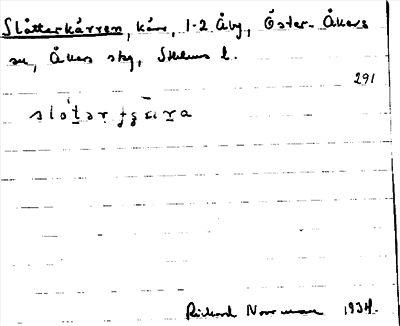 Slåtterkärren, kärr, 1-2 Åby, Öster-Åkers
sn, Åkers skg, Sthlms l.
291
Rickard Norrman 1934.